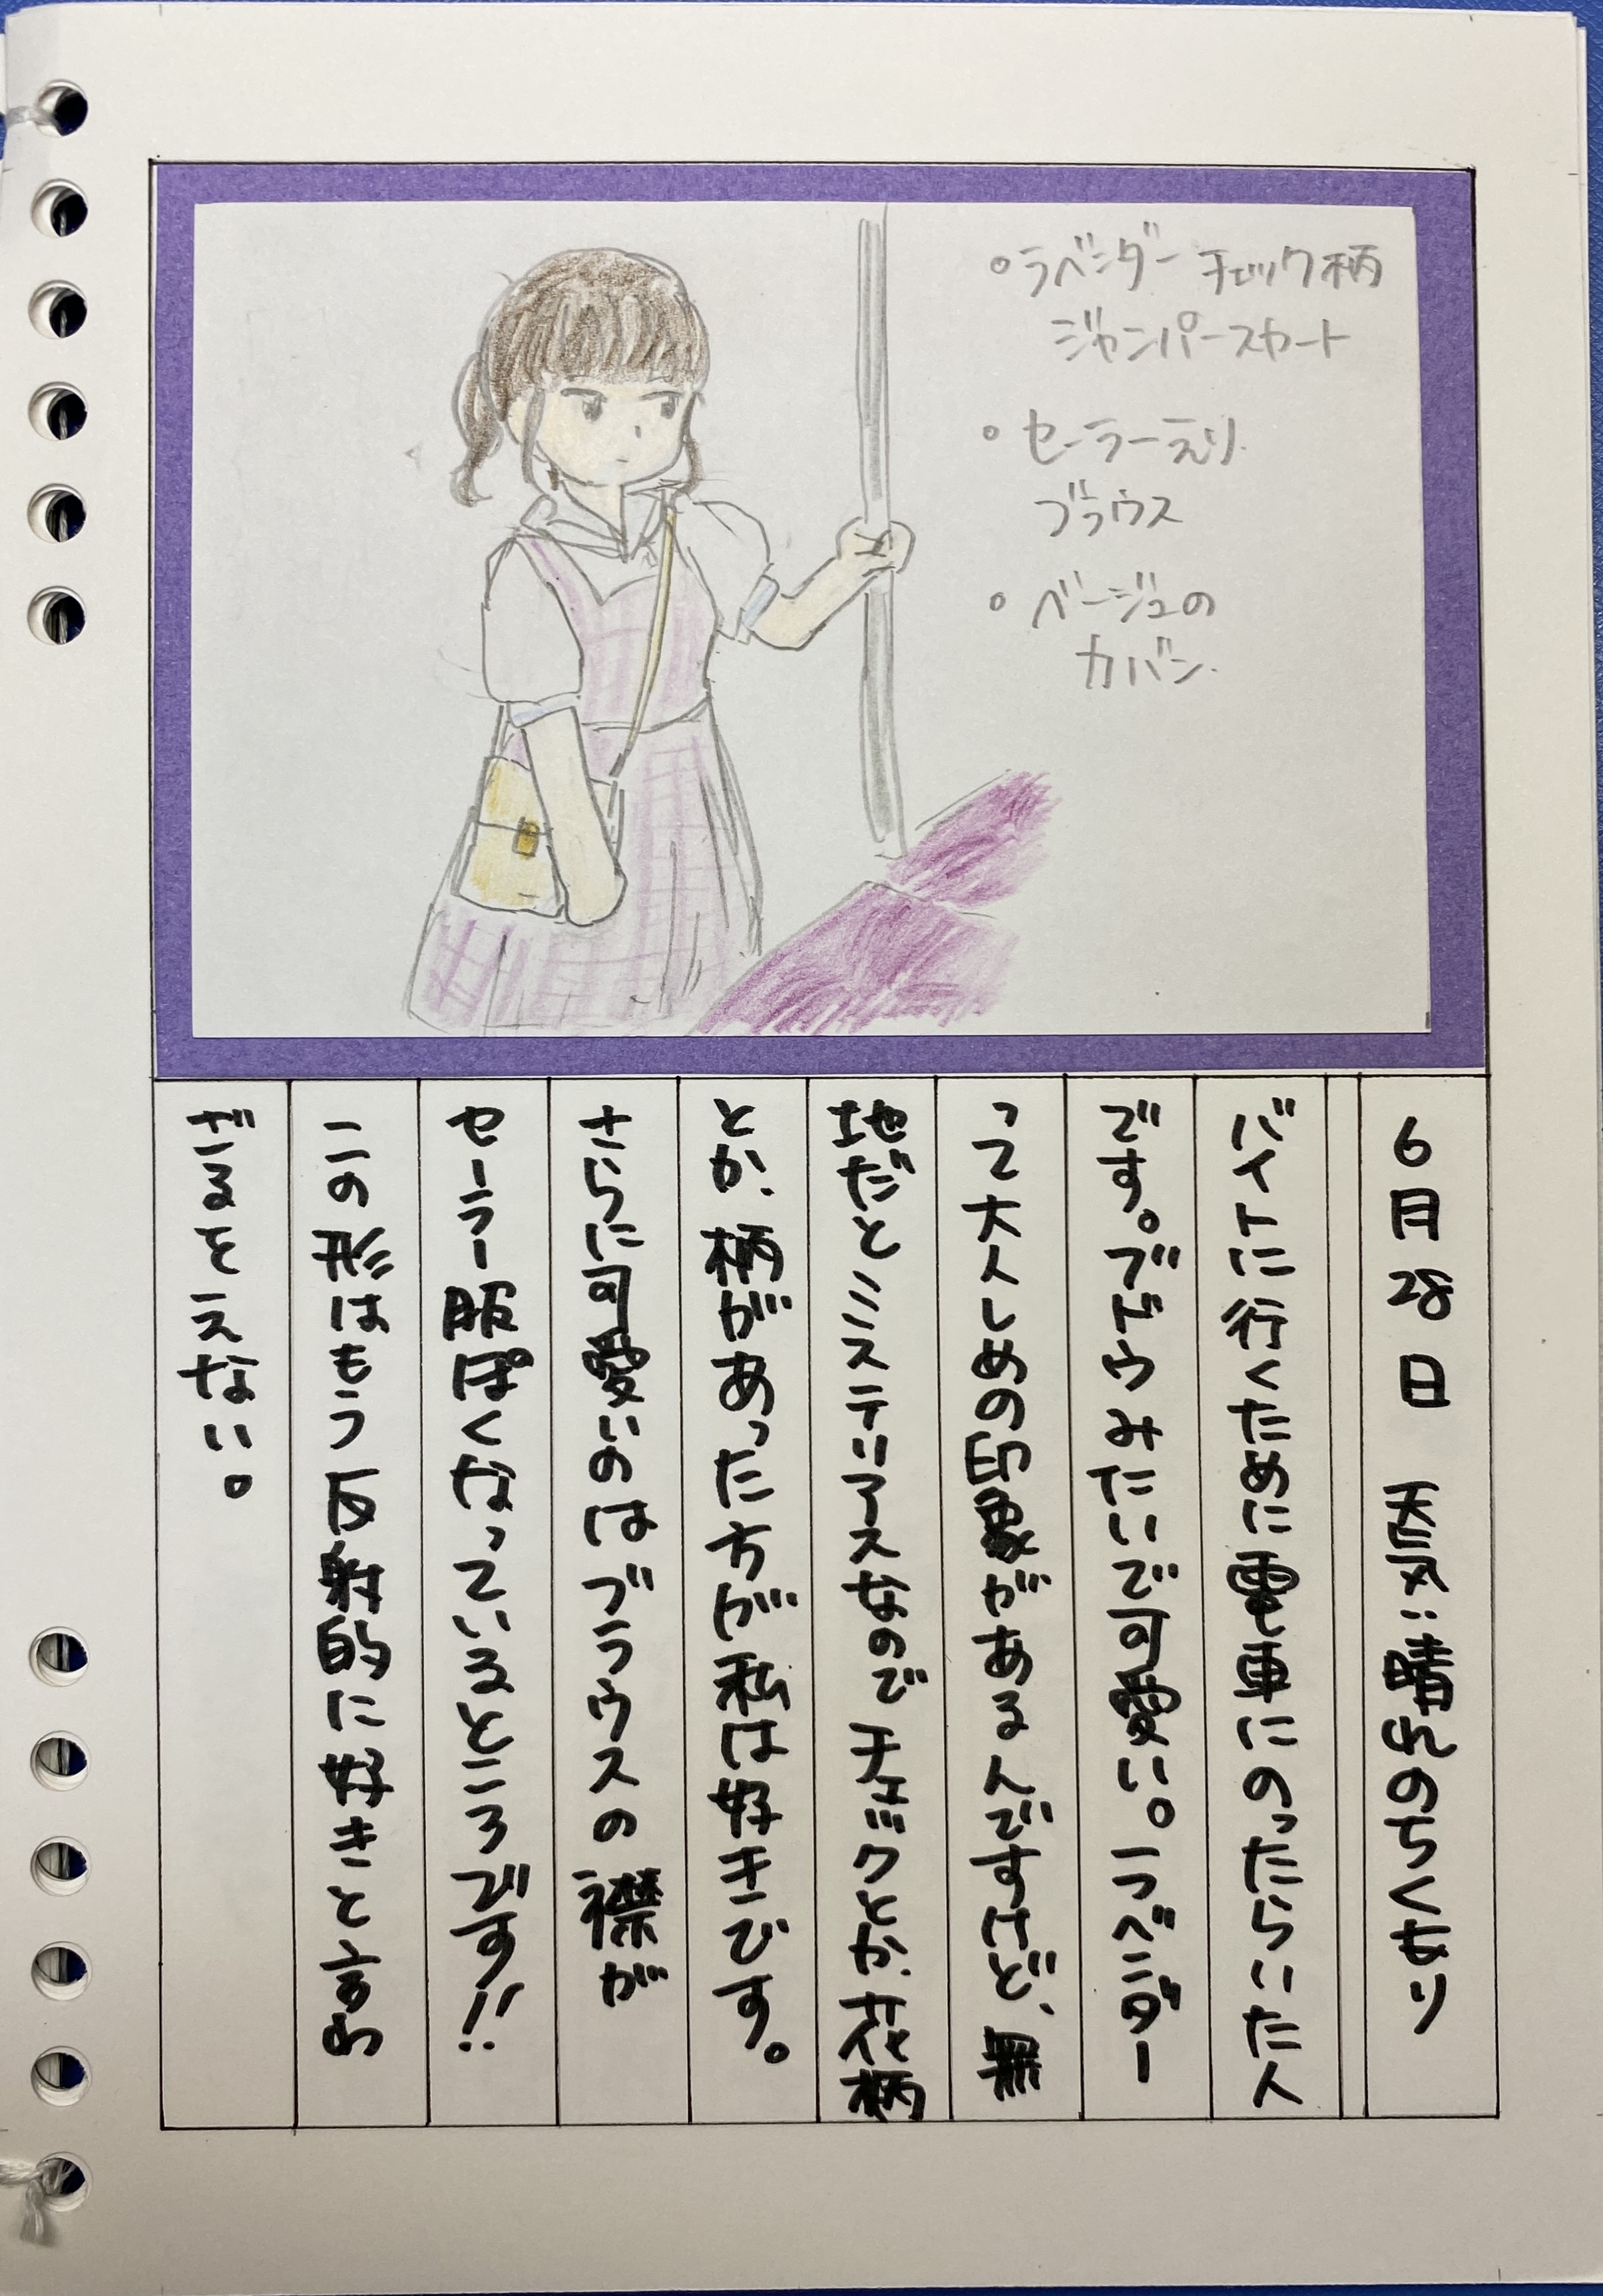 ・ラベンダーチェック柄
ジャンパースカート
・セーラーえり
ブラウス
・ベージュの
カバン
6月28日 天気:晴れのちくもり
バイトに行くために電車にのったらいた人
です。ブドウみたいで可愛い。ラベンダー
って大人しめの印象があるんですけど、無
地だとミステリアスなのでチェックとか、花柄
とか、柄があった方が私は好きです。
さらに可愛いのはブラウスの襟が
セーラー服ぽくなっているところです!!
この形はもう反射的に好きと言わ
ざるをえない。